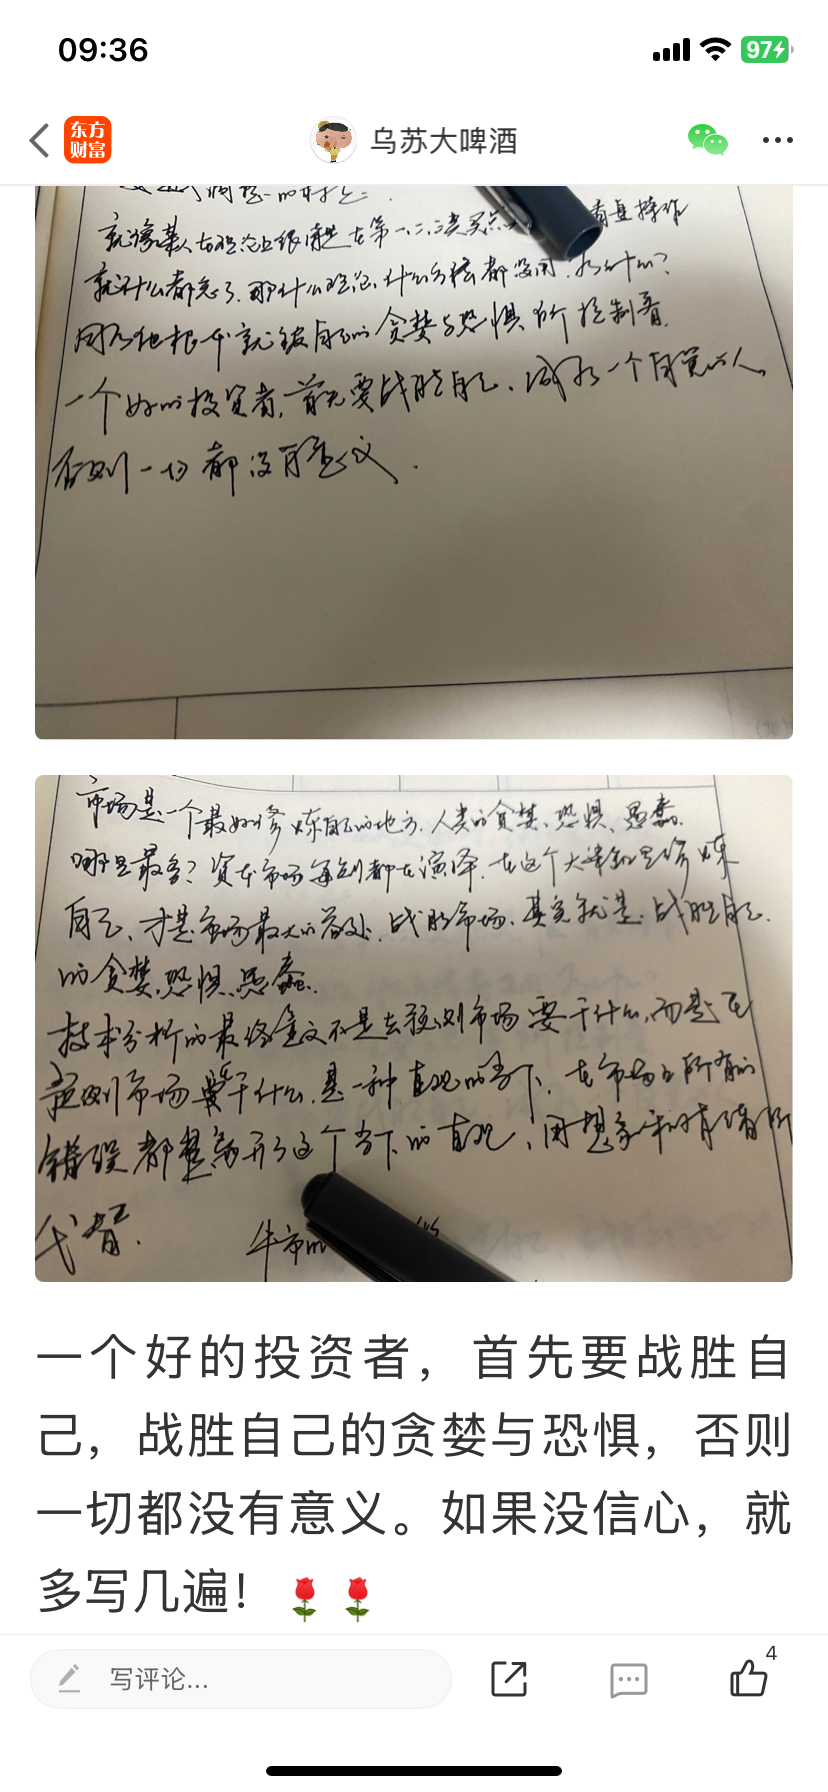 09:36
97
东方
财富
乌苏大啤酒
就什么都忘了.那什么理论.什么方法都没用.为什么?
因为他根本就被自己的贪婪与恐惧所控制着.
一个好的投资者,首先要战胜自己、成为一个自觉的人,
否则一切都没有意义.
市场是一个最好修炼自己的地方.人类的贪婪、恐惧、愚蠢.
哪里最多?资本市场每刻都在演绎.在这个大染缸里修炼
自己、才是市场最大的益处.战胜市场、其实就是战胜自己.
的贪婪、恐惧、愚蠢.
技术分析的最终意义不是去预测市场要干什么,而是在
市场要干什么.是一种直观的当下.在市场上所有的
错误都是离开了这个当下的直观,用想象和情绪所
代替.
牛市的
一个好的投资者，首先要战胜自
己，战胜自己的贪婪与恐惧，否则
一切都没有意义。如果没信心，就
多写几遍！🌹🌹
写评论...
4